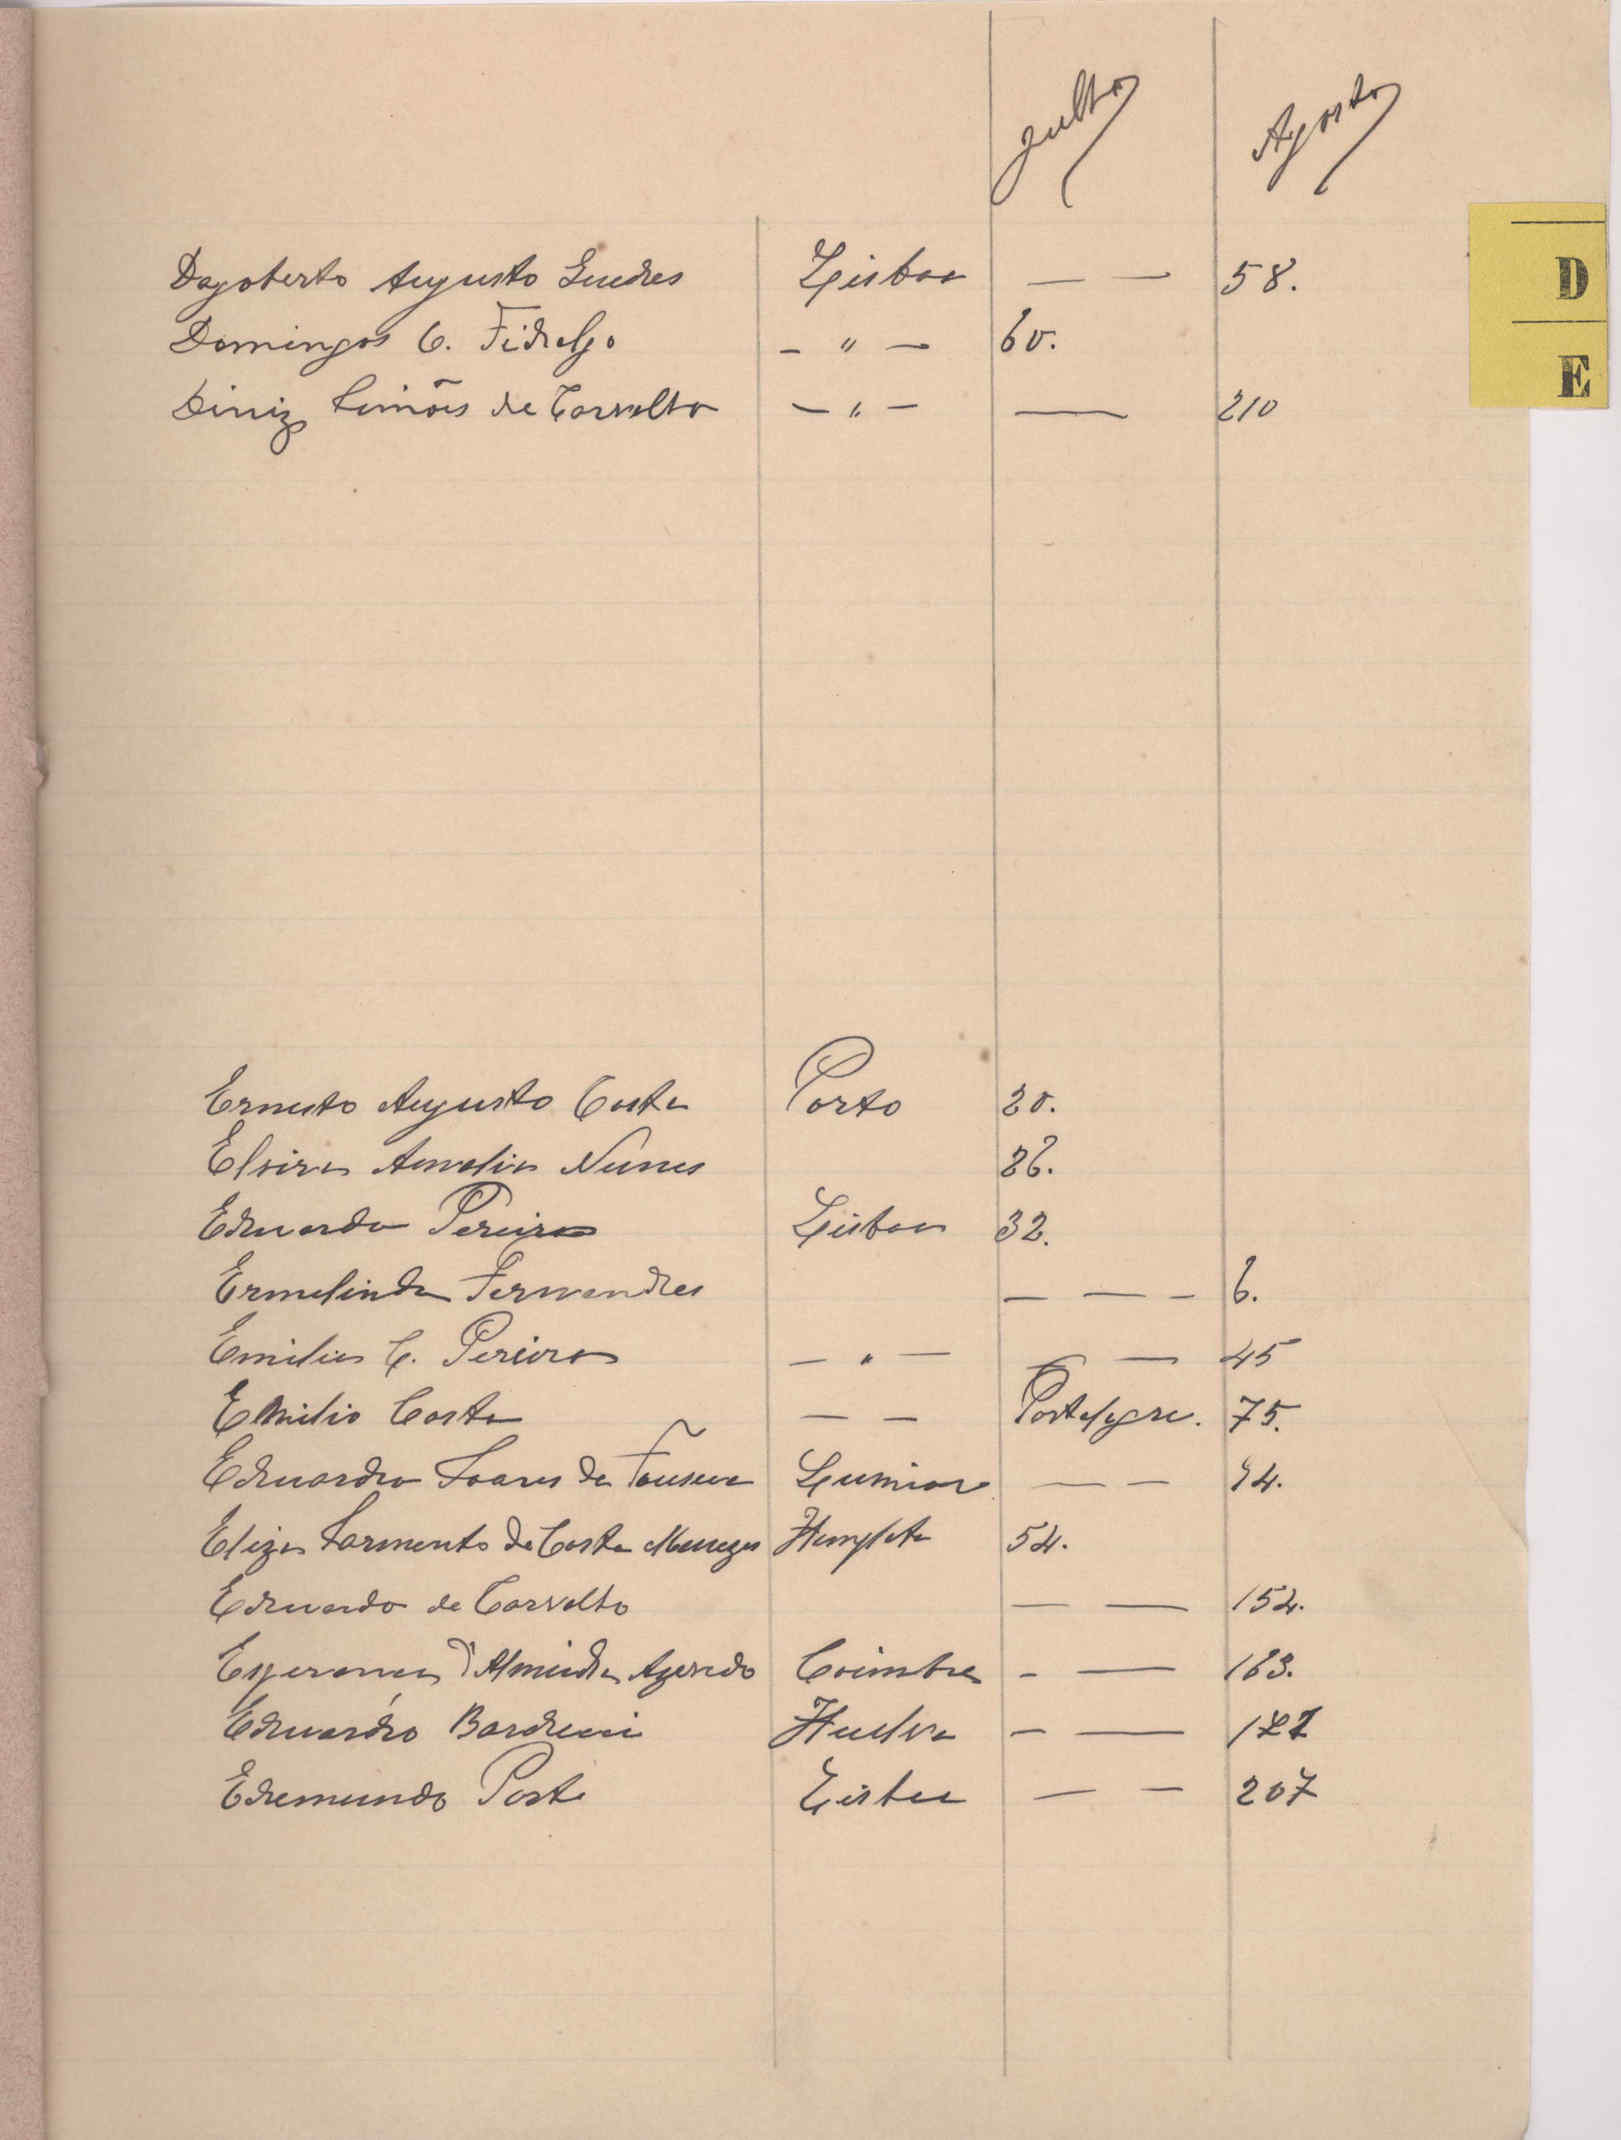 Julho Agosto
Dagoberto Augusto Guedes Lisboa — — 58.
D
Domingos C. Fidalgo - " - 60.
E
Diniz Simões de Carvalho - " - — 210
Ernesto Augusto Costa Porto 20.
Elvira Amelia Nunes 26.
Eduardo Pereira Lisboa 32.
Ermelinda Fernandes — — - 6.
Emilia C. Pereira - " - — — 45
Emilio Costa — — Portalegre. 75.
Eduardo Soares da Fonseca Lumiar — — 94.
Eliza Sarmento da Costa Menezes 54.
Eduardo de Carvalho — — 152.
Esperança d'Almeida Azevedo Coimbra - — 163.
Eduardo Huelva - —
Edemundo Porto Lisboa — — 207